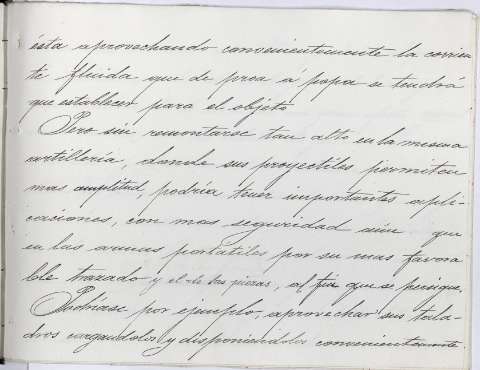 ésta aprovechando convenientemente la corrien
te fluida que de proa á popa se tendrá
que establecer para el objeto
Pero sin remontarse tan alto en la misma
artillería, donde sus proyectiles permiten
mas amplitud, podría tener importantes apli-
caciones, con mas seguridad aún que
en las armas portátiles por su mas favora
ble trazado y el de las piezas, al fin que se persigue,
Podríase por ejemplo, aprovechar sus tala-
dros cargandolos y disponiendolos convenientemente